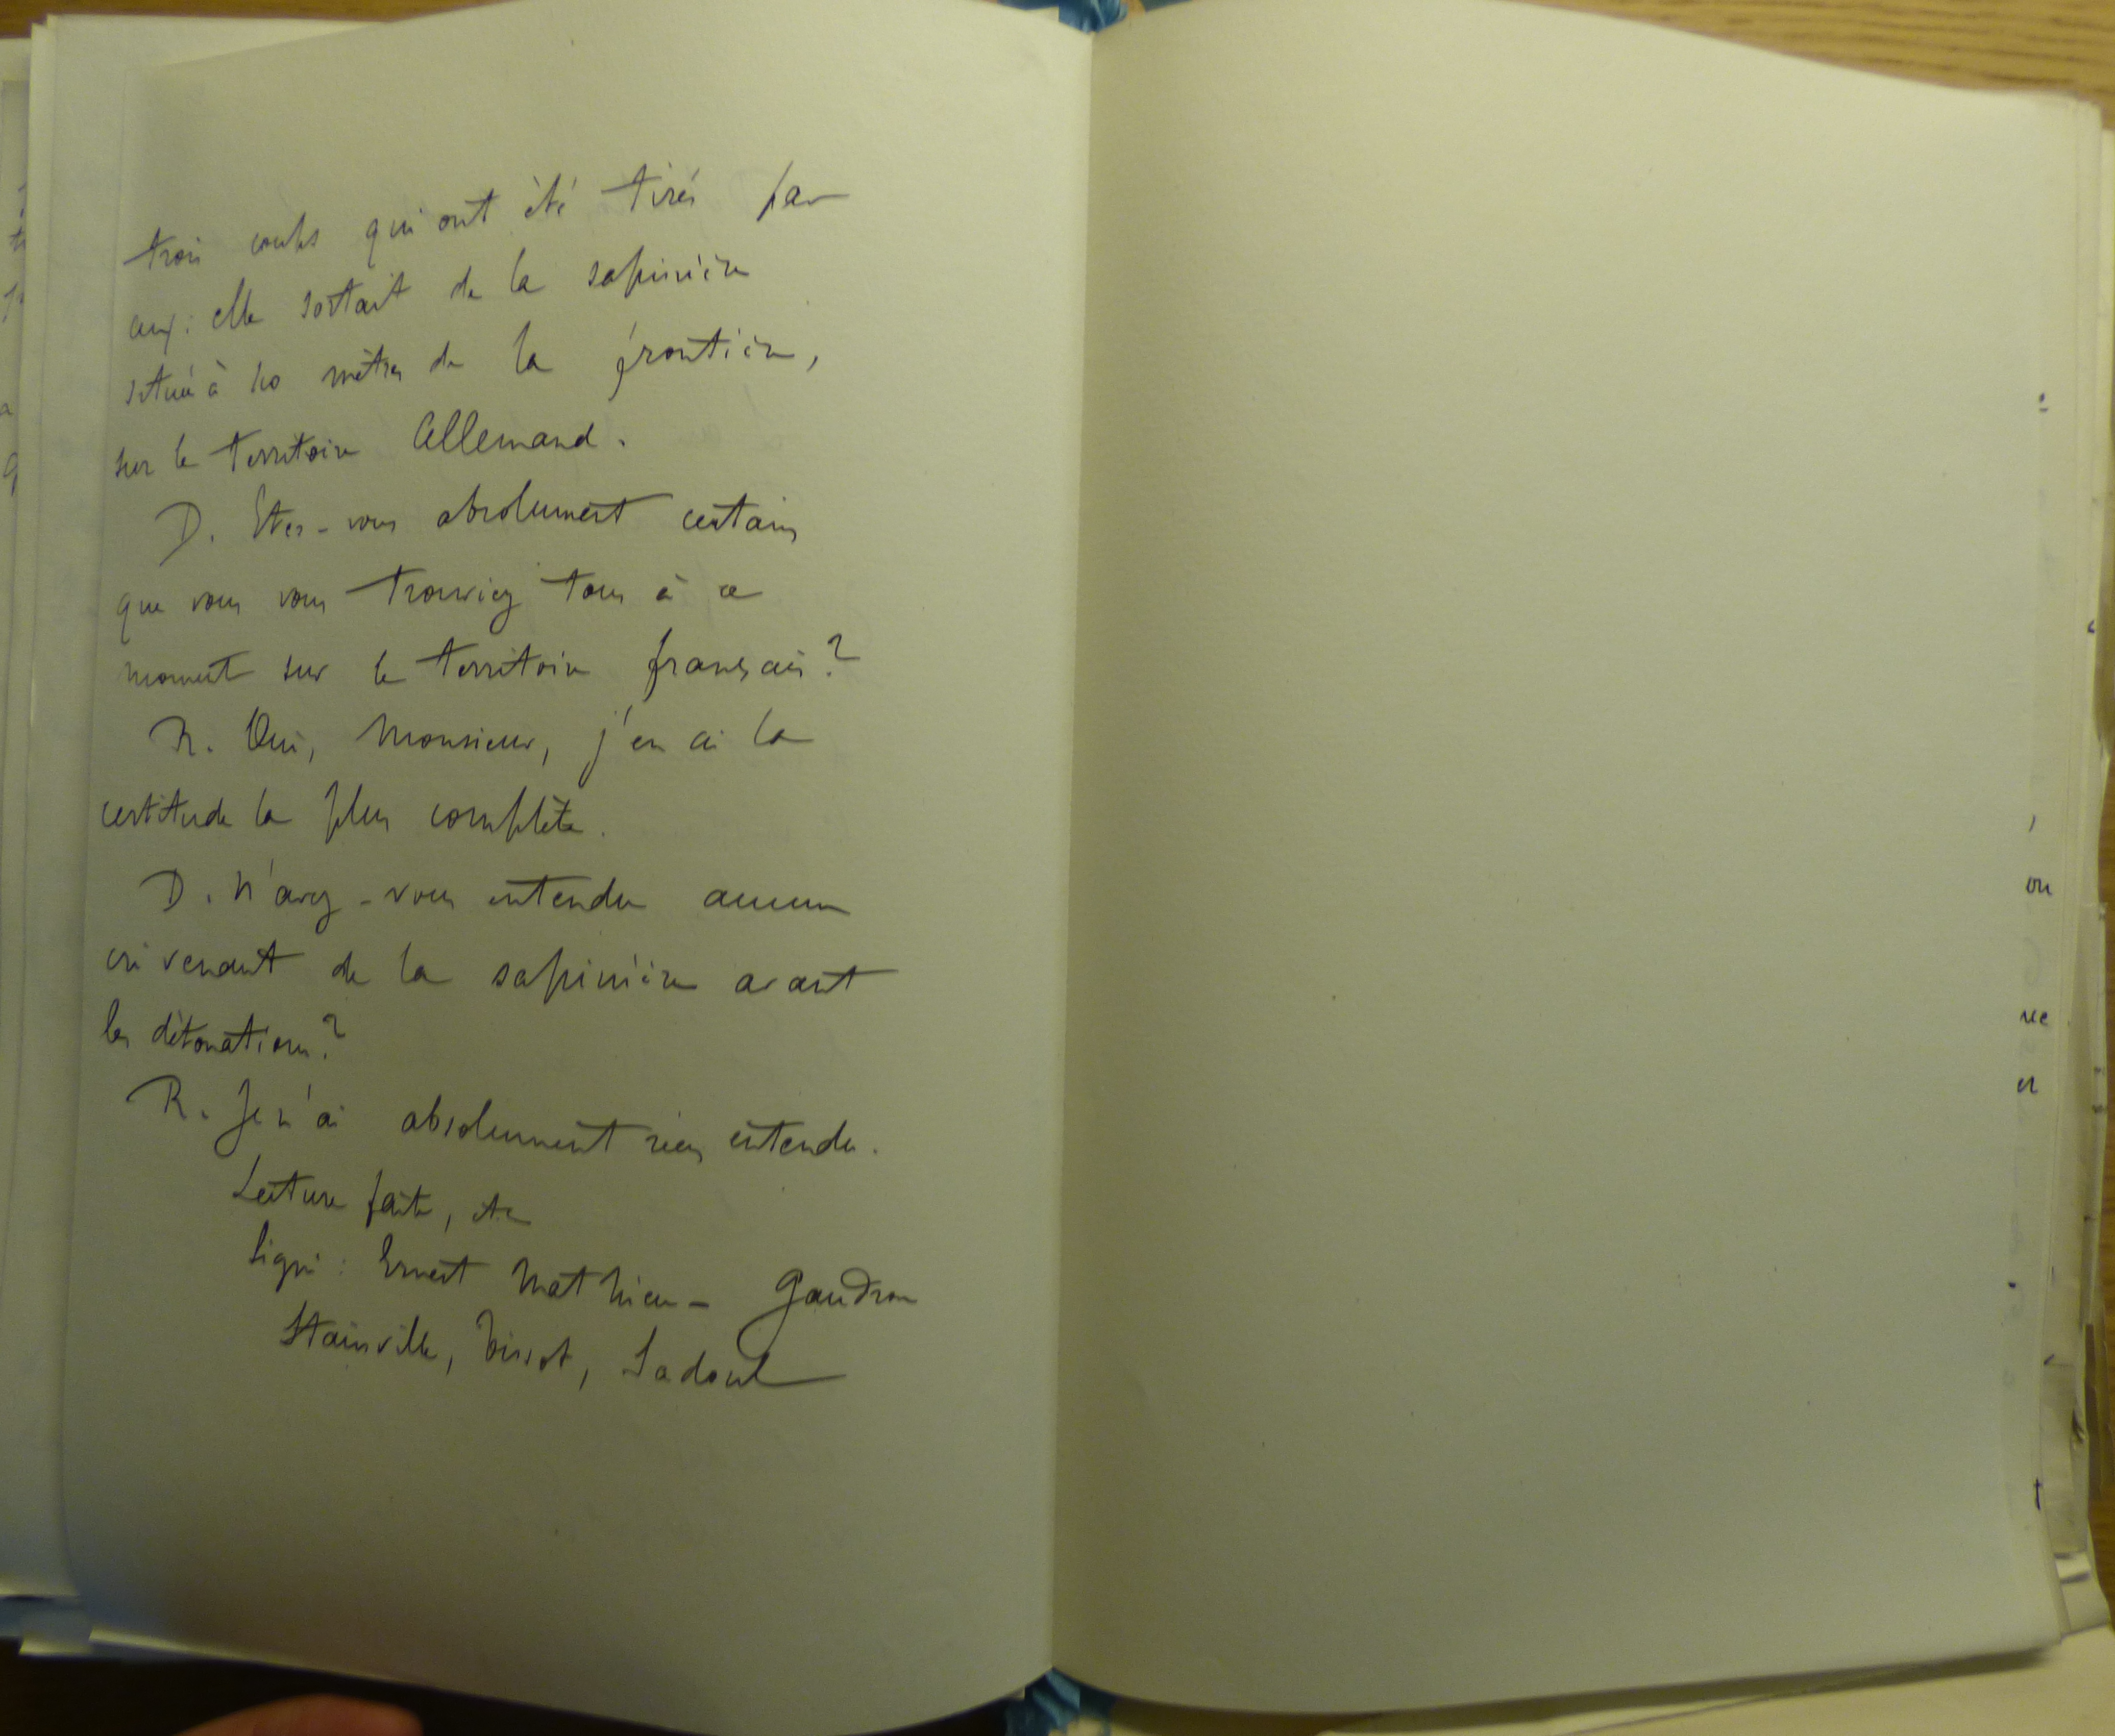 trois coups qui ont été tirés par
eux : elle sortait de la sapinière
située à 40 mètres de la frontière,
sur le territoire Allemand.
D. Etes-vous absolument certain
que vous vous trouviez tous à ce
moment sur le territoire français ?
R. Oui, Monsieur, j'en ai la
certitude la plus complète.
D. N'avez-vous entendu aucun
cri venant de la sapinière avant
les détonations ?
R. Je n'ai absolument rien entendu.
Lecture faite, etc
Signé : Ernest Mathieu - Gaudron
Stainville, Tissot, Sadoul